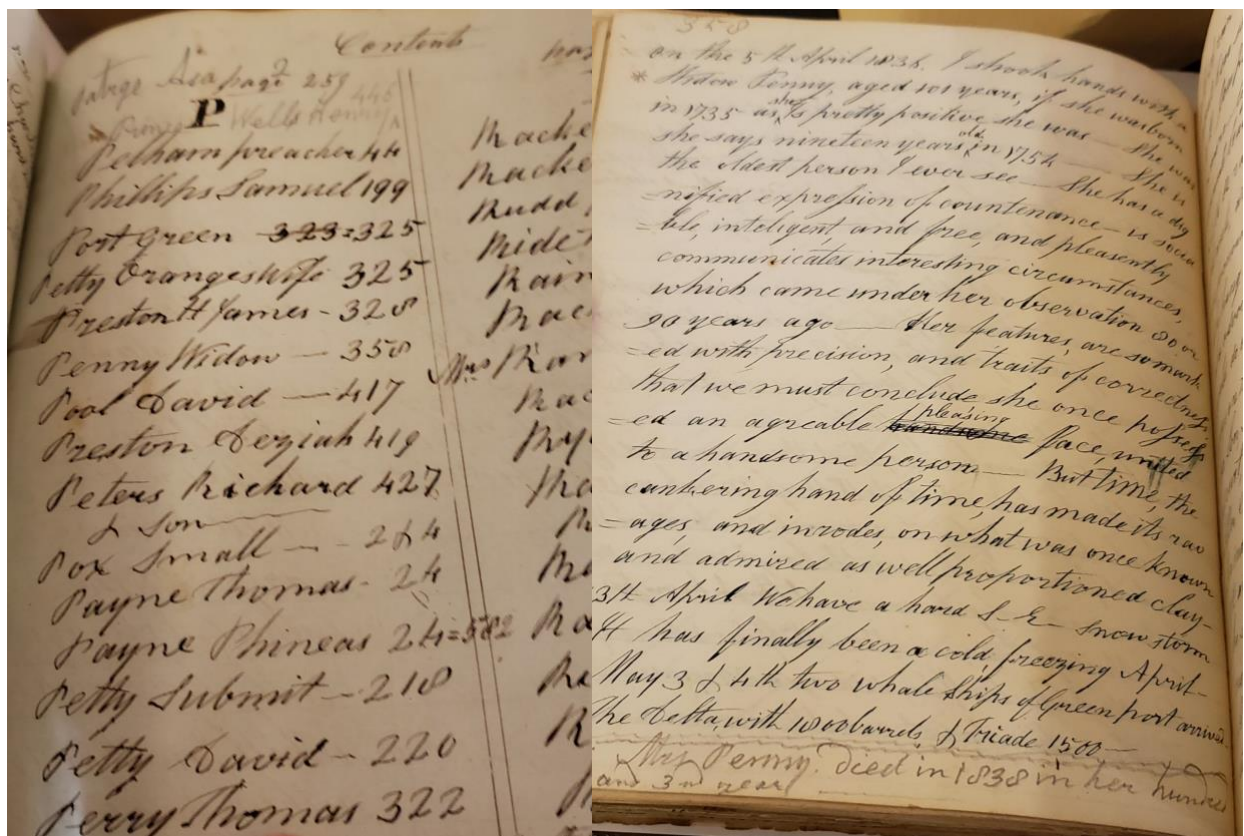 Contents
Patrge Asa page 259
P Wells Henry 446
Pelham preacher 44
Phillips Samuel 199
Port Green 323=325
Petty Oranges Wife 325
Preston H James - 328
Penny Widow - 358
Pool David - 417
Preston Keziah 419
Peters Richard 427
& Son
Pox Small - 2 & 4
Payne Thomas - 24
Payne Phineas 24=582
Petty Submit - 218
Petty David - 220
Perry Thomas 322
Mrs
358
on the 5th April 1836. I shook hands with a
* Widow Penny, aged 101 years, if she was born
in 1735 as she is pretty positive she was - She was
she says nineteen years old in 1754 - She is
the oldest person I ever see - She has a dig
=nified expression of countenance - is socia
=ble, inteligent, and free, and pleasently
communicates interesting circumstances,
which came under her observation 80 or
90 years ago - Her features, are so mark
=ed with precision, and traits of correctness
that we must conclude she once possess
=ed an agreable pleasing face, united
to a handsome person - But time, the
cankering hand of time, has made its rav
=ages, and inrodes, on what was once known
and admired as well proportioned clay-
April We have a hard S. E. snow storm
It has finally been a cold, freezing April-
May 3 & 4th two whale Ships of Greenport arrived
the Delta, with 1800 barrels, & Triade 1500-
Mrs Penny. Died in 1838 in her hundred
and 3rd year